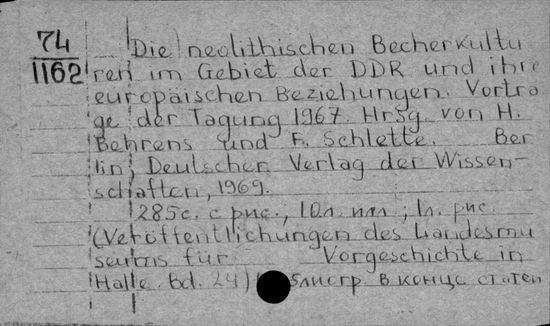 74
1162
Die neolithischen Becherkultu
ren im Gebiet der DDR und ihre
europäischen Beziehungen. Vorträ
ge der Tagung 1967. Hrsg. von H.
Behrens und F. Schlette. Ber
lin, Deutscher Verlag der Wissen-
schaften, 1969.
285с. с рис., 10л. илл., 1л. рис.
(Veröffentlichungen des Landesmu
seums für Vorgeschichte in
Halle. Bd. 24) Библиогр. в конце статей